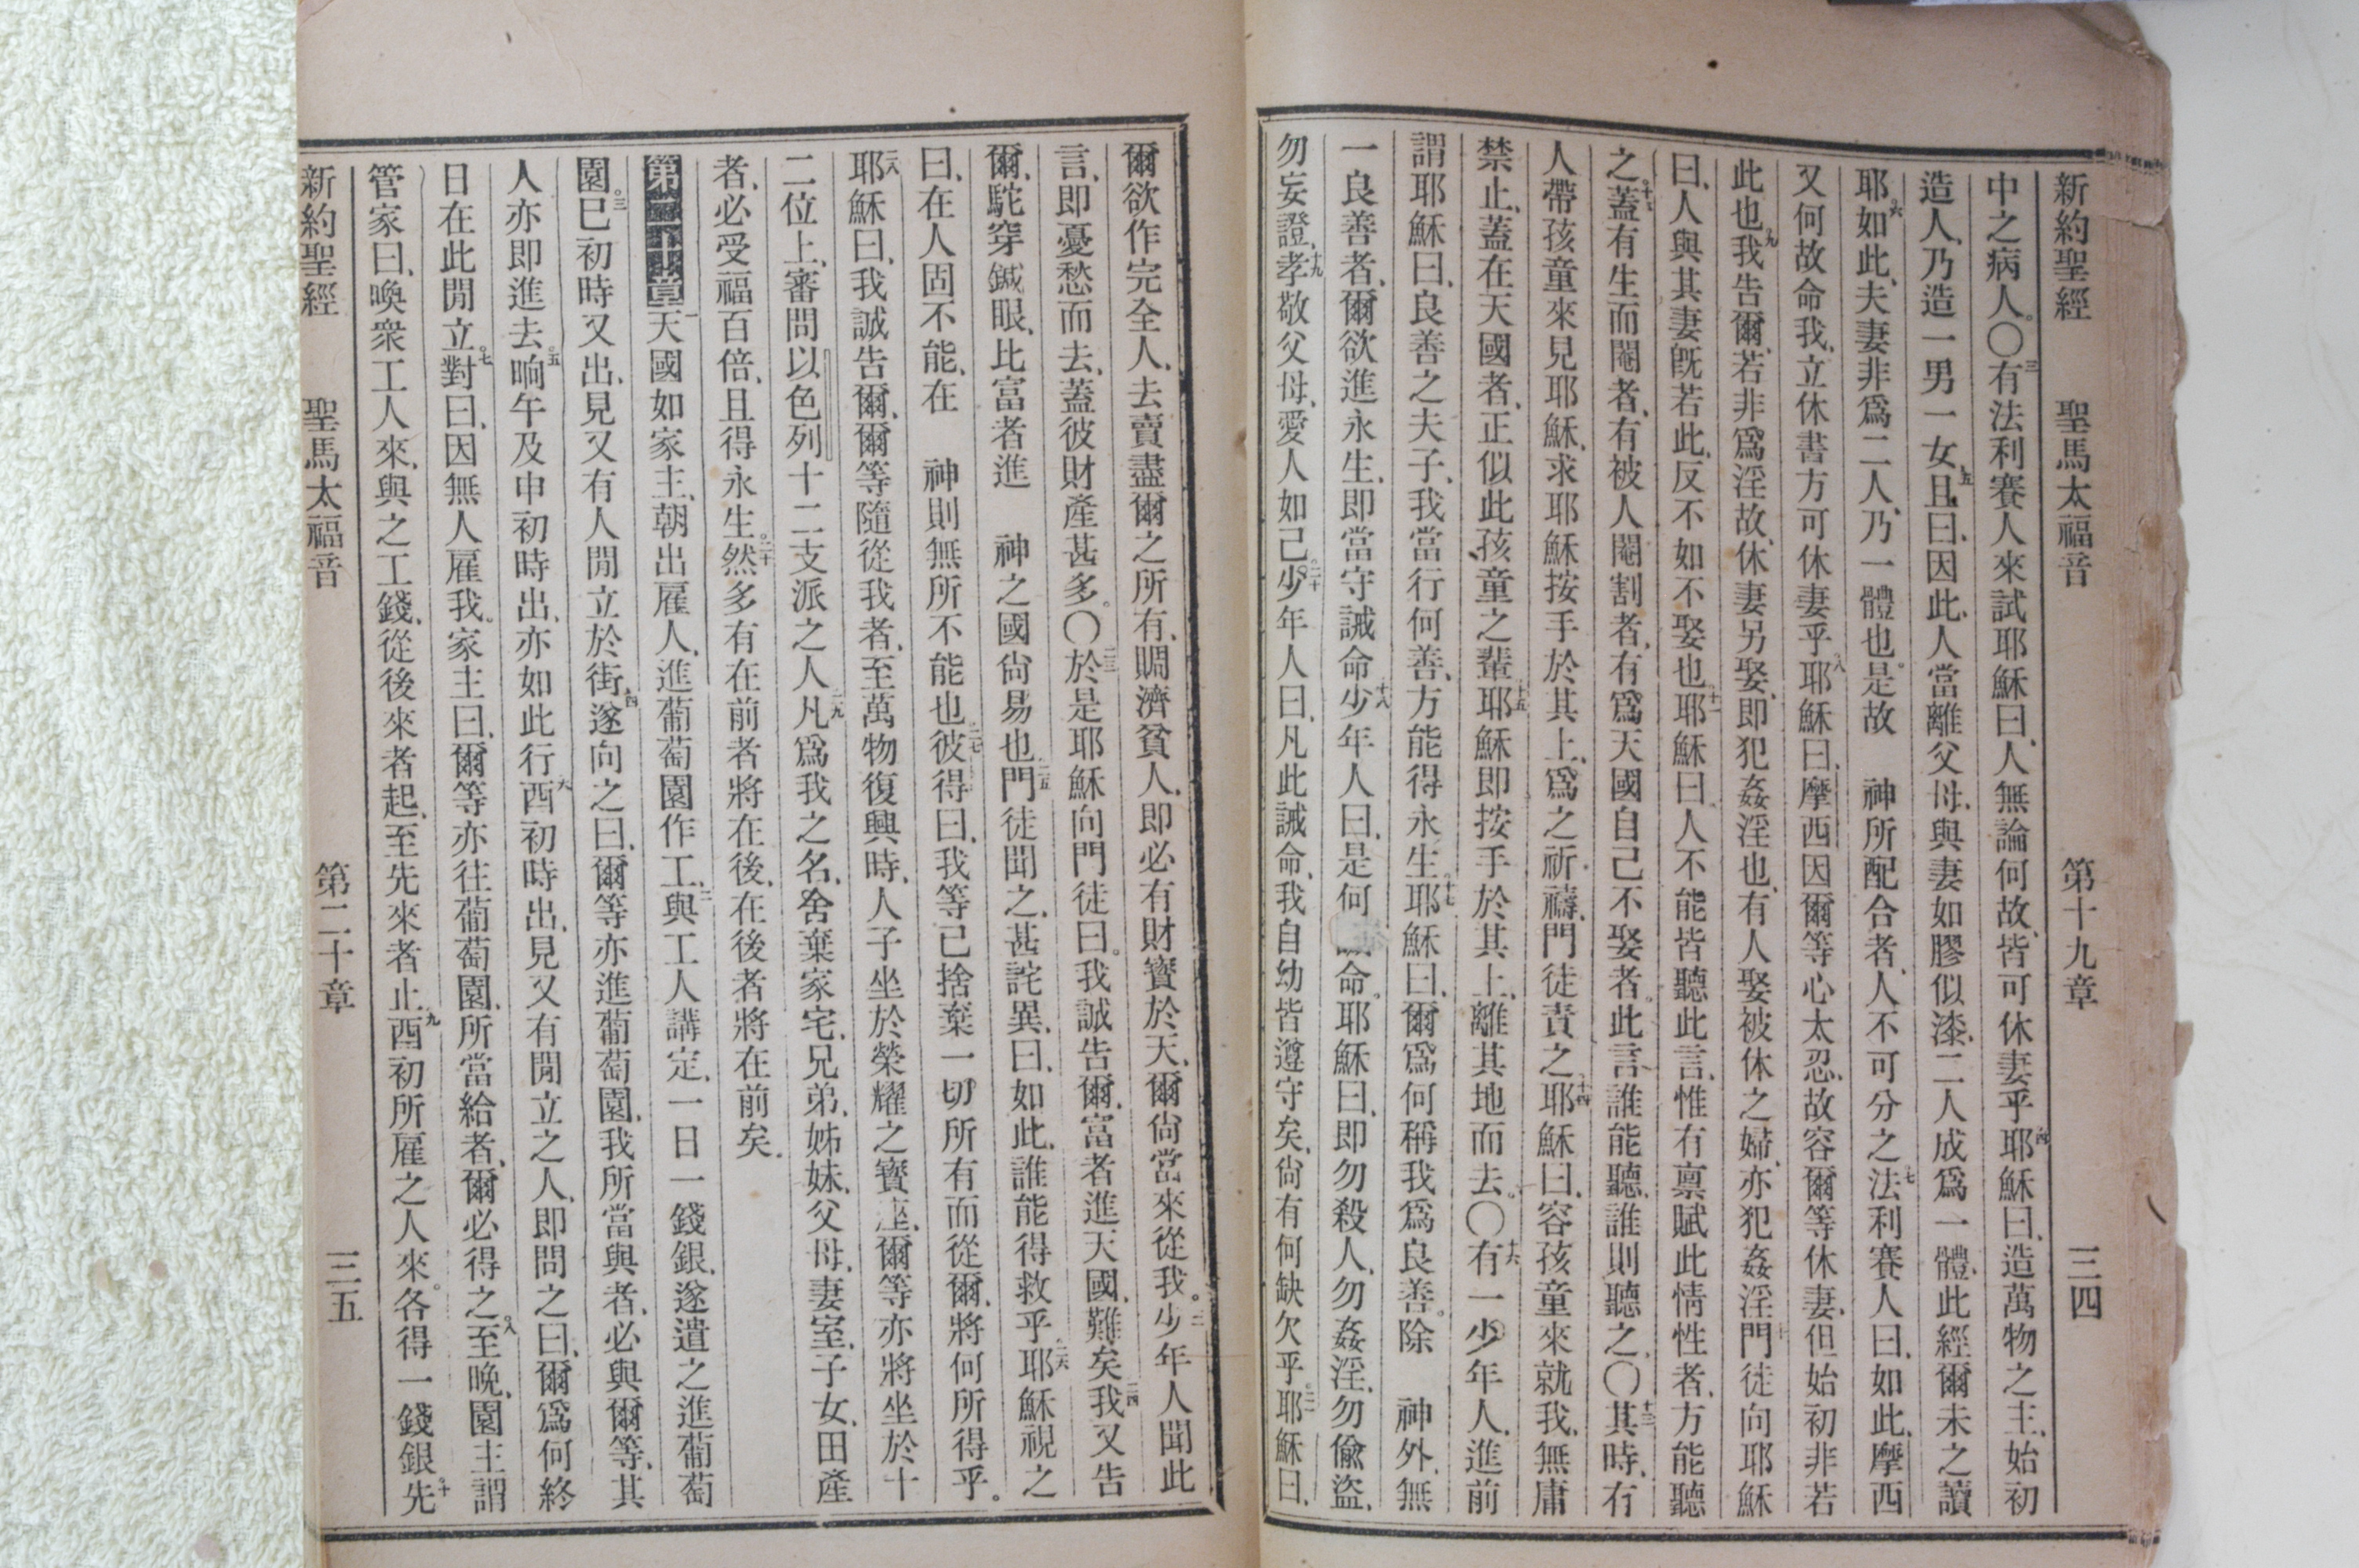 新約聖經 聖馬太福音 第十九章 三四
中之病人。〇三有法利賽人來試耶穌曰、人無論何故、皆可休妻乎、四耶穌曰、造萬物之主、始初
造人、乃造一男一女、五且曰、因此、人當離父母、與妻如膠似漆、二人成爲一體、此經爾未之讀
耶、六如此、夫妻非爲二人、乃一體也。是故 神所配合者、人不可分之、七法利賽人曰、如此、摩西
又何故命我、立休書方可休妻乎、八耶穌曰、摩西因爾等心太忍、故容爾等休妻、但始初非若
此也、九我告爾、若非爲淫故、休妻另娶、即犯姦淫也、有人娶被休之婦、亦犯姦淫、十門徒向耶穌
曰、人與其妻旣若此、反不如不娶也、十一耶穌曰、人不能皆聽此言、惟有禀賦此情性者、方能聽
之。十二蓋有生而閹者、有被人閹割者、有爲天國自己不娶者。此言誰能聽、誰則聽之、〇十三其時、有
人帶孩童來見耶穌、求耶穌按手於其上、爲之祈禱、門徒責之、十四耶穌曰、容孩童來就我、無庸
禁止、蓋在天國者、正似此孩童之輩、十五耶穌即按手於其上、離其地而去。〇十六有一少年人、進前
謂耶穌曰、良善之夫子、我當行何善、方能得永生、十七耶穌曰、爾爲何稱我爲良善。除 神外、無
一良善者、爾欲進永生、即當守誡命、十八少年人曰、是何命。耶穌曰、即勿殺人、勿姦淫、勿偸盜、
勿妄證、十九孝敬父母、愛人如己、二十少年人曰、凡此誡命、我自幼皆遵守矣、尙有何缺欠乎、二一耶穌曰、
爾欲作完全人、去賣盡爾之所有、賙濟貧人、即必有財寶於天、爾尙當來從我。二二少年人聞此
言、即憂愁而去、蓋彼財產甚多。〇二三於是耶穌向門徒曰。我誠告爾、富者進天國、難矣、二四我又告
爾、駝穿鍼眼、比富者進 神之國尙易也、二五門徒聞之、甚詫異、曰、如此、誰能得救乎、二六耶穌視之
曰、在人固不能、在 神則無所不能也、二七彼得曰、我等已捨棄一切所有而從爾、將何所得乎。
二八耶穌曰、我誠告爾、爾等隨從我者、至萬物復興時、人子坐於榮耀之寶座、爾等亦將坐於十
二位上、審問以色列十二支派之人、二九凡爲我之名、舍棄家宅、兄弟、姊妹、父母、妻室、子女、田產
者、必受福百倍、且得永生。三十然多有在前者將在後、在後者將在前矣、
第二十章一天國如家主、朝出雇人、進葡萄園作工、二與工人講定、一日一錢銀、遂遣之進葡萄
園。三巳初時又出、見又有人閒立於街、四遂向之曰、爾等亦進葡萄園、我所當與者、必與爾等、其
人亦即進去。五晌午及申初時出、亦如此行、六酉初時出、見又有閒立之人、即問之曰、爾爲何終
日在此閒立。七對曰、因無人雇我。家主曰、爾等亦往葡萄園、所當給者、爾必得之。八至晚、園主謂
管家曰、喚衆工人來、與之工錢、從後來者起、至先來者止、九酉初所雇之人來。各得一錢銀、十先
新約聖經 聖馬太福音 第二十章 三五